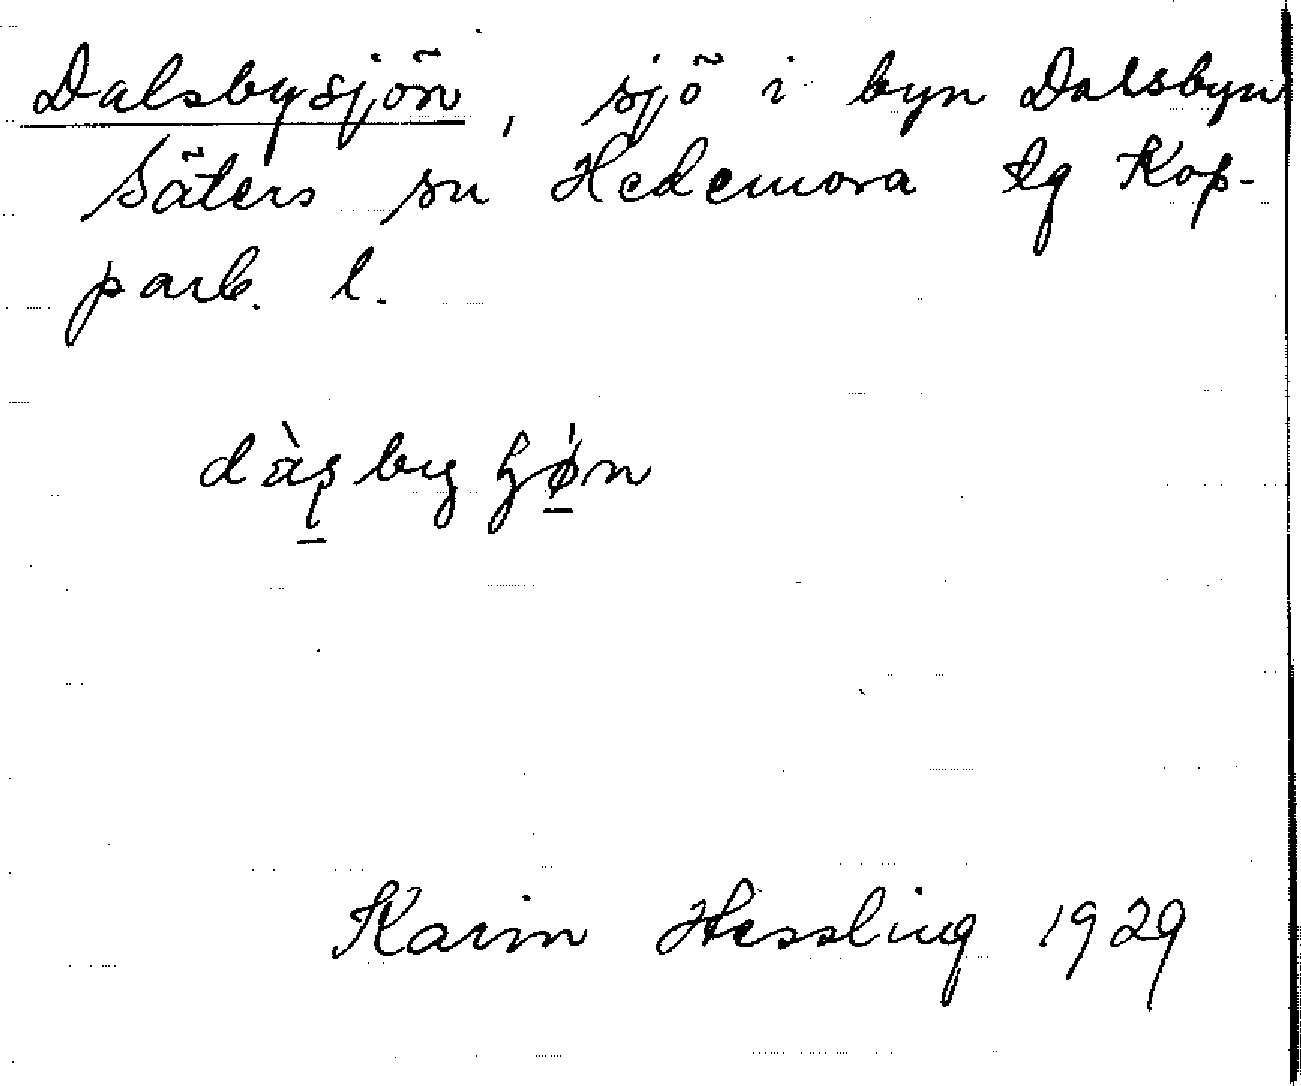 Dalsbysjön, sjö i byn Dalsbyn
Säters sn Hedemora tg Kop-
parb. l.
Karin Hessling 1929